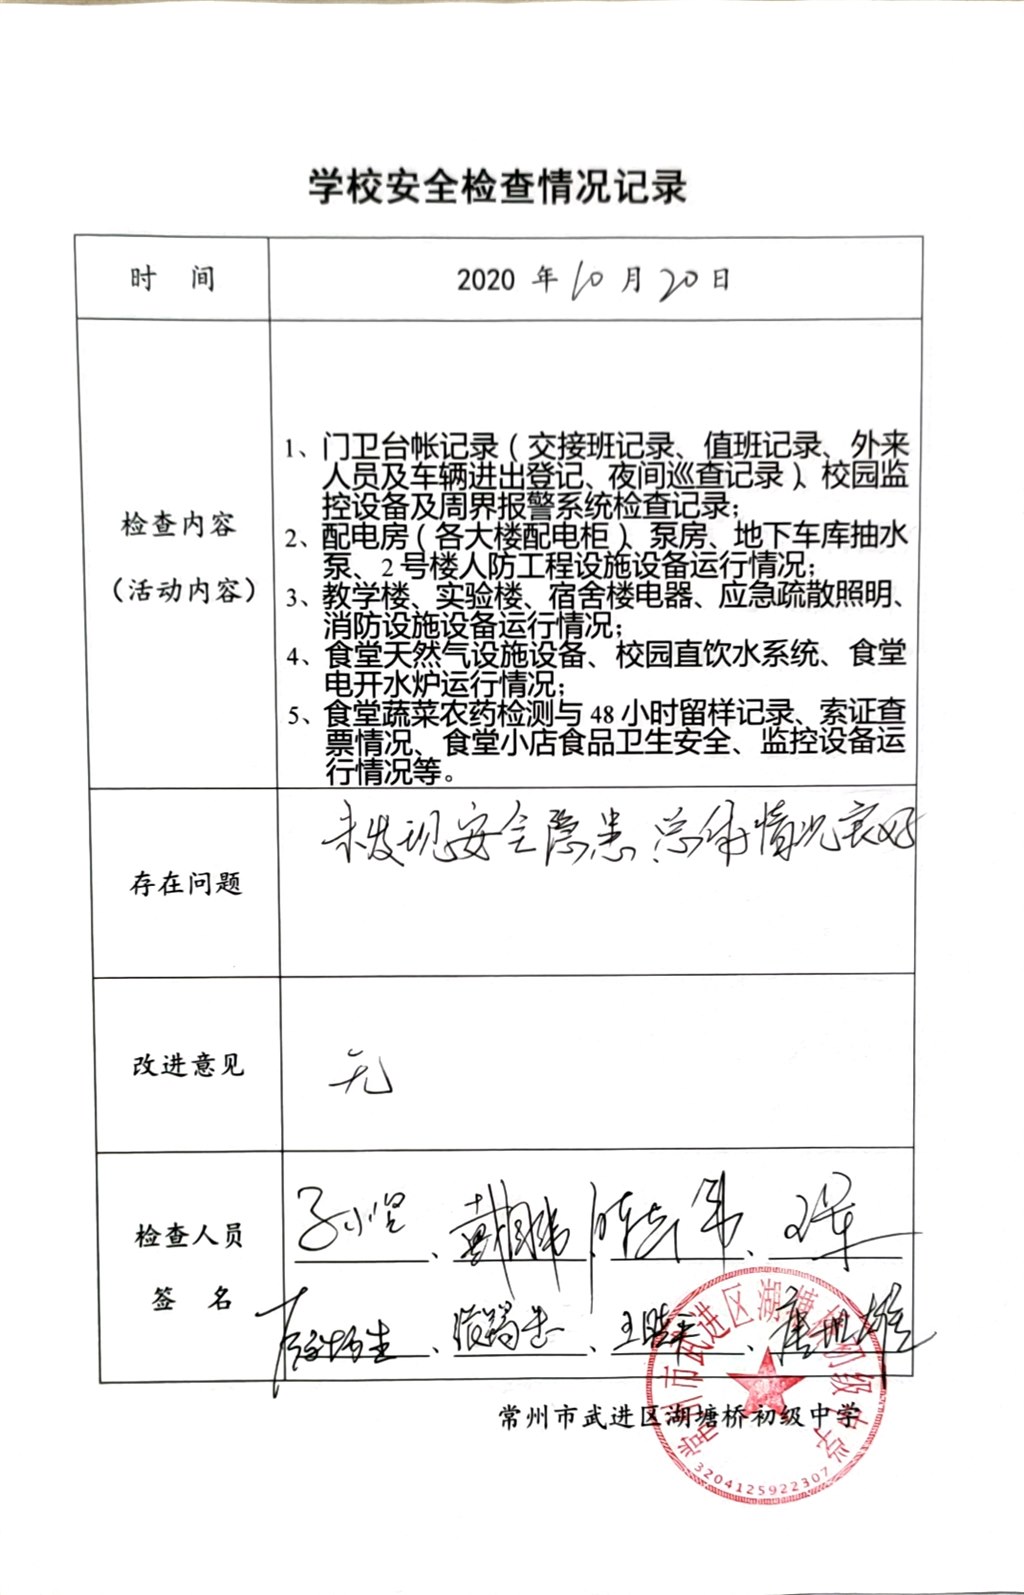 学校安全检查情况记录
时 间
2020 年 10 月 20 日
检查内容
（活动内容）
1、门卫台帐记录（交接班记录、值班记录、外来
人员及车辆进出登记、夜间巡查记录）、校园监
控设备及周界报警系统检查记录；
2、配电房（各大楼配电柜）、泵房、地下车库抽水
泵、2 号楼人防工程设施设备运行情况；
3、教学楼、实验楼、宿舍楼电器、应急疏散照明、
消防设施设备运行情况；
4、食堂天然气设施设备、校园直饮水系统、食堂
电开水炉运行情况；
5、食堂蔬菜农药检测与 48 小时留样记录、索证查
票情况、食堂小店食品卫生安全、监控设备运
行情况等。
存在问题
未发现安全隐患 总体情况良好
改进意见
无
检查人员
签 名
常州市武进区湖塘桥初级中学
常州市武进区湖塘桥初级中学
3204125922307